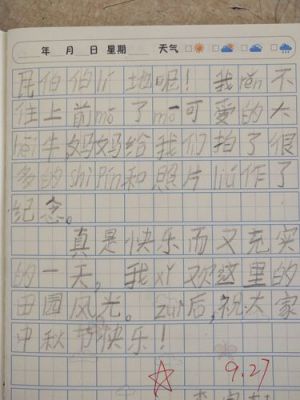 年 月 日 星期 天气
民伯伯lí 地呢! 我rěn不
住上前mō了mō可爱的大
水牛妈妈给我们拍了很
多的shì Pín和照片liú作了
纪念。
真是快乐而又充实
的一天，我xǐ欢这里的
田园风光。zuì后,祝大家
中秋节快乐!
9.27